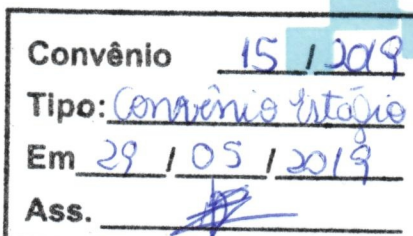 Convênio 15 / 2019
Tipo: Convênio Estágio
Em 29 / 05 / 2019
Ass.